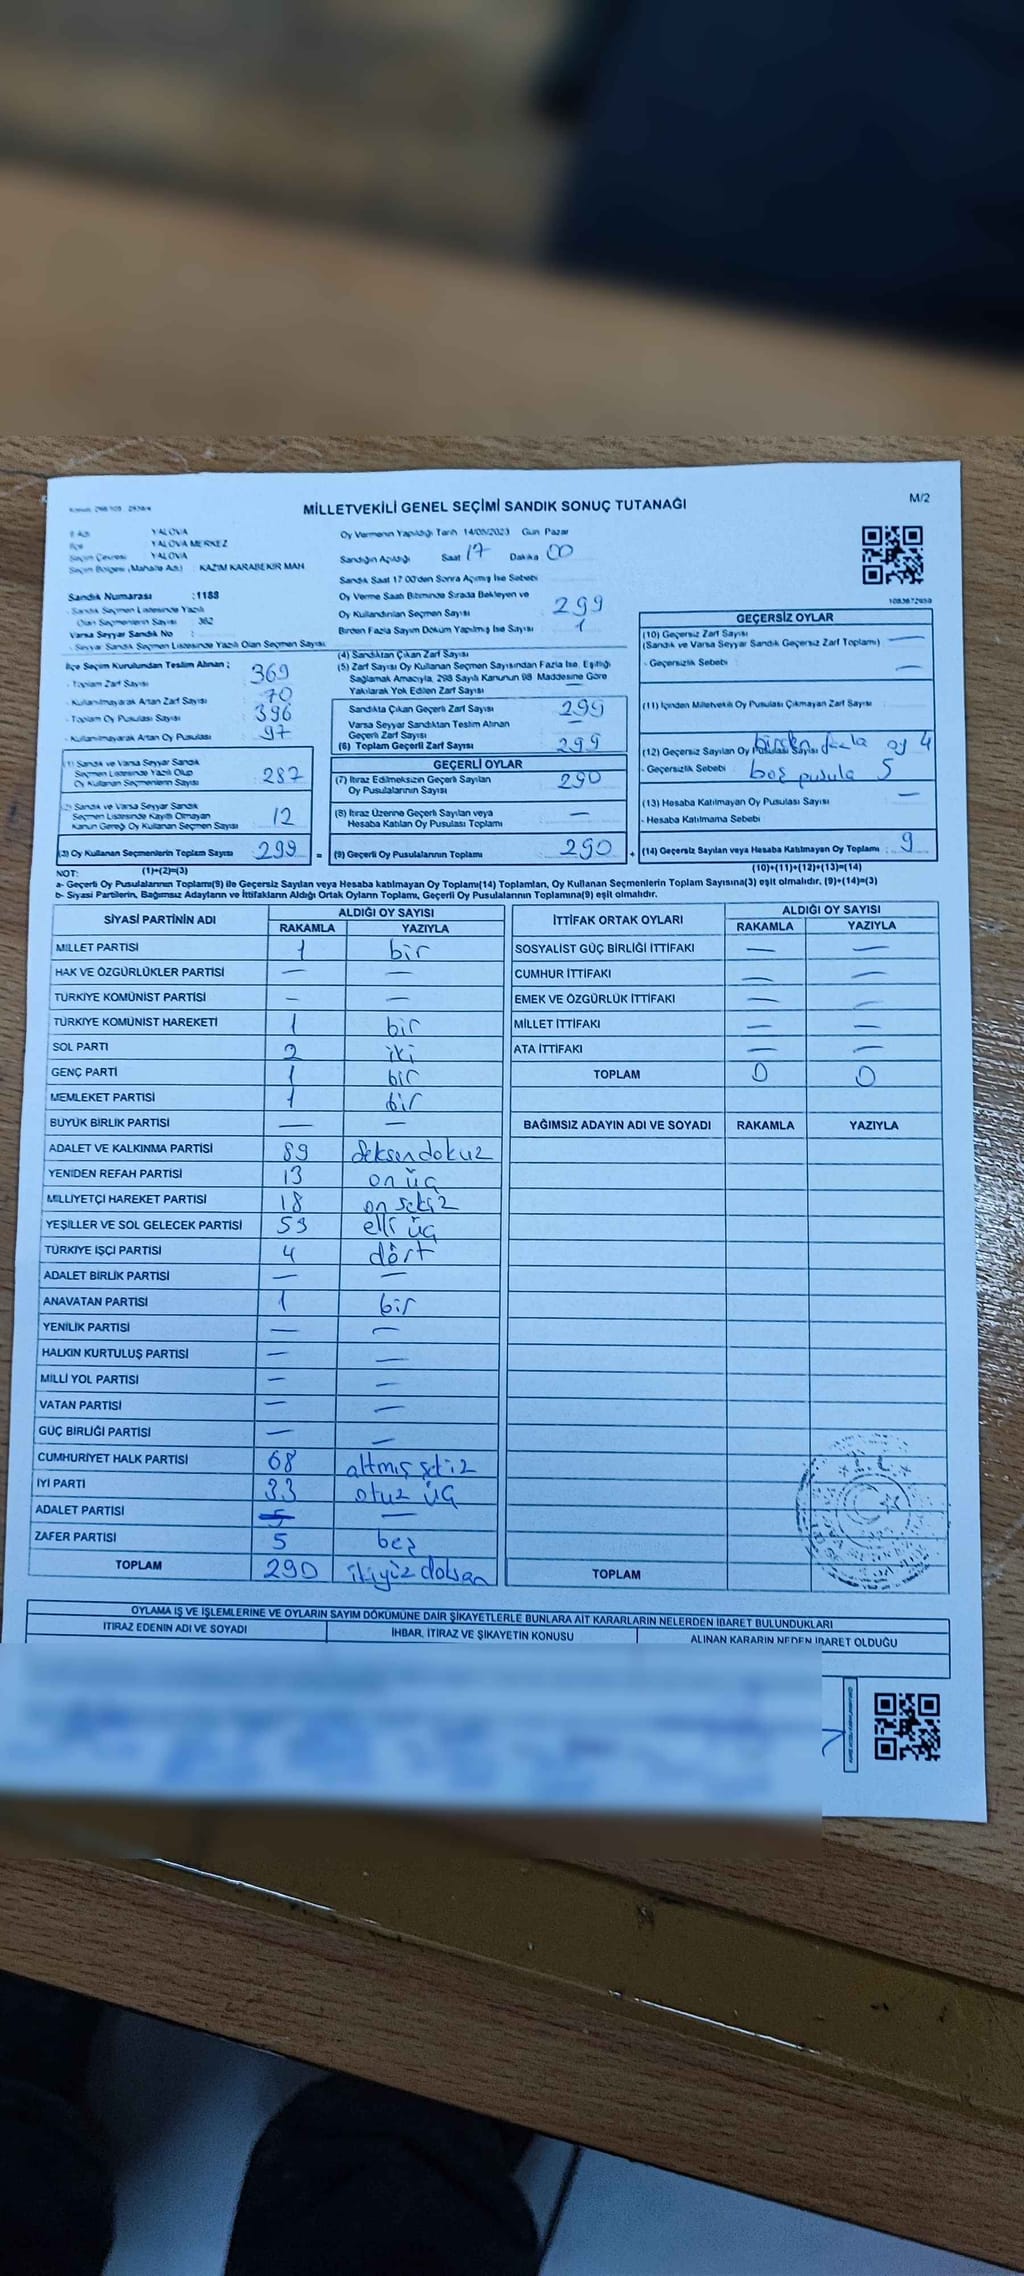 MİLLETVEKİLİ GENEL SEÇİMİ SANDIK SONUÇ TUTANAĞI
M/2
İl Adı YALOVA
İlçe YALOVA MERKEZ
Seçim Çevresi YALOVA
Seçim Bölgesi (Mahalle Adı) : KAZIM KARABEKİR MAH
Sandık Numarası :1188
- Sandık Seçmen Listesinde Yazılı
Olan Seçmenlerin Sayısı 362
Varsa Seyyar Sandık No :
- Seyyar Sandık Seçmen Listesinde Yazılı Olan Seçmen Sayısı
Oy Vermenin Yapıldığı Tarih 14/05/2023 Gün Pazar
Sandığın Açıldığı Saat 17 Dakika 00
Sandık Saat 17 00'den Sonra Açılmış İse Sebebi
Oy Verme Saati Bitiminde Sırada Bekleyen ve
Oy Kullandırılan Seçmen Sayısı 299
Birden Fazla Sayım Döküm Yapılmış İse Sayısı 1
İlçe Seçim Kurulundan Teslim Alınan ;
- Toplam Zarf Sayısı 369
- Kullanılmayarak Artan Zarf Sayısı 70
- Toplam Oy Pusulası Sayısı 396
- Kullanılmayarak Artan Oy Pusulası 97
(1) Sandık ve Varsa Seyyar Sandık
Seçmen Listesinde Yazılı Olup
Oy Kullanan Seçmen Sayısı 287
(2) Sandık ve Varsa Seyyar Sandık
Seçmen Listesinde Kayıtlı Olmayan
Kanun Gereği Oy Kullanan Seçmen Sayısı 12
(3) Oy Kullanan Seçmenlerin Toplam Sayısı 299 =
(1)+(2)=(3)
(4) Sandıktan Çıkan Zarf Sayısı
(5) Zarf Sayısı Oy Kullanan Seçmen Sayısından Fazla İse, Eşitliği
Sağlamak Amacıyla, 298 Sayılı Kanunun 98 Maddesine Göre
Yakılarak Yok Edilen Zarf Sayısı —
Sandıkta Çıkan Geçerli Zarf Sayısı 299
Varsa Seyyar Sandıktan Teslim Alınan
Geçerli Zarf Sayısı —
(6) Toplam Geçerli Zarf Sayısı 299
GEÇERLİ OYLAR
(7) İtiraz Edilmeksizin Geçerli Sayılan
Oy Pusulalarının Sayısı 290
(8) İtiraz Üzerine Geçerli Sayılan veya
Hesaba Katılan Oy Pusulası Toplamı —
(9) Geçerli Oy Pusulalarının Toplamı 290 +
GEÇERSİZ OYLAR
(10) Geçersiz Zarf Sayısı
(Sandık ve Varsa Seyyar Sandık Geçersiz Zarf Toplamı) —
- Geçersizlik Sebebi —
(11) İçinden Milletvekili Oy Pusulası Çıkmayan Zarf Sayısı
(12) Geçersiz Sayılan Oy Pusulası Sayısı birden fazla oy 4
- Geçersizlik Sebebi boş pusula 5
(13) Hesaba Katılmayan Oy Pusulası Sayısı —
- Hesaba Katılmama Sebebi
(14) Geçersiz Sayılan veya Hesaba Katılmayan Oy Toplamı 9
(10)+(11)+(12)+(13)=(14)
NOT:
a- Geçerli Oy Pusulalarının Toplamı(9) ile Geçersiz Sayılan veya Hesaba katılmayan Oy Toplamı(14) Toplamları, Oy Kullanan Seçmenlerin Toplam Sayısına(3) eşit olmalıdır. (9)+(14)=(3)
b- Siyasi Partilerin, Bağımsız Adayların ve İttifakların Aldığı Ortak Oyların Toplamı, Geçerli Oy Pusulalarının Toplamına(9) eşit olmalıdır.
SİYASİ PARTİNİN ADI ALDIĞI OY SAYISI
RAKAMLA YAZIYLA
MİLLET PARTİSİ 1 bir
HAK VE ÖZGÜRLÜKLER PARTİSİ — —
TÜRKİYE KOMÜNİST PARTİSİ — —
TÜRKİYE KOMÜNİST HAREKETİ 1 bir
SOL PARTİ 2 iki
GENÇ PARTİ 1 bir
MEMLEKET PARTİSİ 1 bir
BÜYÜK BİRLİK PARTİSİ — —
ADALET VE KALKINMA PARTİSİ 89 seksendokuz
YENİDEN REFAH PARTİSİ 13 on üç
MİLLİYETÇİ HAREKET PARTİSİ 18 on sekiz
YEŞİLLER VE SOL GELECEK PARTİSİ 53 elli üç
TÜRKİYE İŞÇİ PARTİSİ 4 dört
ADALET BİRLİK PARTİSİ — —
ANAVATAN PARTİSİ 1 bir
YENİLİK PARTİSİ — —
HALKIN KURTULUŞ PARTİSİ — —
MİLLİ YOL PARTİSİ — —
VATAN PARTİSİ — —
GÜÇ BİRLİĞİ PARTİSİ — —
CUMHURİYET HALK PARTİSİ 68 altmış sekiz
İYİ PARTİ 33 otuz üç
ADALET PARTİSİ —
ZAFER PARTİSİ 5 beş
TOPLAM 290 ikiyüz doksan
İTTİFAK ORTAK OYLARI ALDIĞI OY SAYISI
RAKAMLA YAZIYLA
SOSYALİST GÜÇ BİRLİĞİ İTTİFAKI — —
CUMHUR İTTİFAKI — —
EMEK VE ÖZGÜRLÜK İTTİFAKI — —
MİLLET İTTİFAKI — —
ATA İTTİFAKI — —
TOPLAM 0 0
BAĞIMSIZ ADAYIN ADI VE SOYADI RAKAMLA YAZIYLA
TOPLAM
OYLAMA İŞ VE İŞLEMLERİNE VE OYLARIN SAYIM DÖKÜMÜNE DAİR ŞİKAYETLERLE BUNLARA AİT KARARLARIN NELERDEN İBARET BULUNDUKLARI
İTİRAZ EDENİN ADI VE SOYADI İHBAR, İTİRAZ VE ŞİKAYETİN KONUSU ALINAN KARARIN NEDEN İBARET OLDUĞU